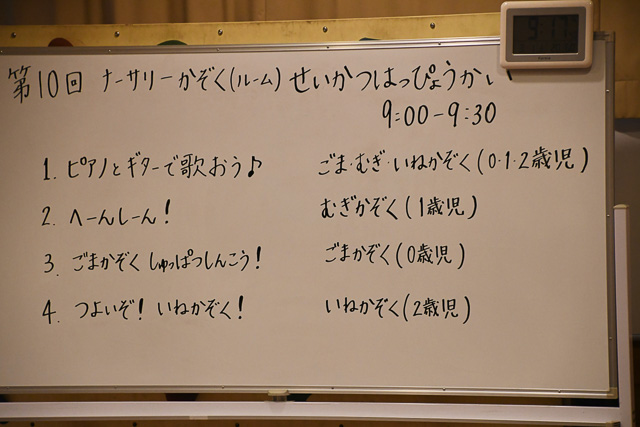 第10回 ナーサリーかぞく(ルーム) せいかつはっぴょうかい
9:00-9:30
1. ピアノとギターで歌おう♪ ごま・むぎ・いねかぞく(0・1・2歳児)
2. へーんしーん! むぎかぞく(1歳児)
3. ごまかぞく しゅっぱつしんこう! ごまかぞく(0歳児)
4. つよいぞ! いねかぞく! いねかぞく(2歳児)